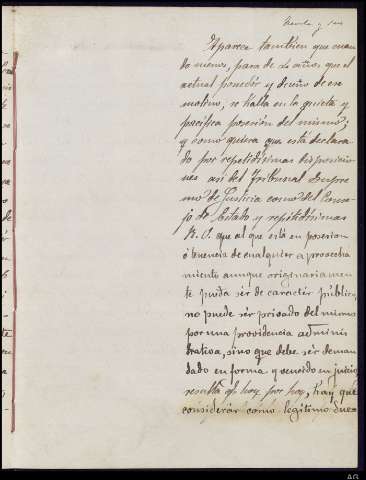 Aparece tambien que cuan
do menos, pasa de 20 años que el
actual poseedor y dueño de ese
molino, se halla en la quieta y
pacifica posesion del mismo;
y como quiera que está declara
do por repetidisimas disposicio
nes asi del Tribunal Supre
mo de Justicia como del Conse
jo de Estado y repetidisimas
R. O. que al que está en posesion
ó tenencia de cualquier aprovecha
miento aunque originariamen
te pueda ser de carácter público,
no puede ser privado del mismo
por una providencia adminis
trativa, sino que debe ser deman
dado en forma y vencido en juicio,
resulta qe. hoy por hoy, hay que
considerar como legitimo due=